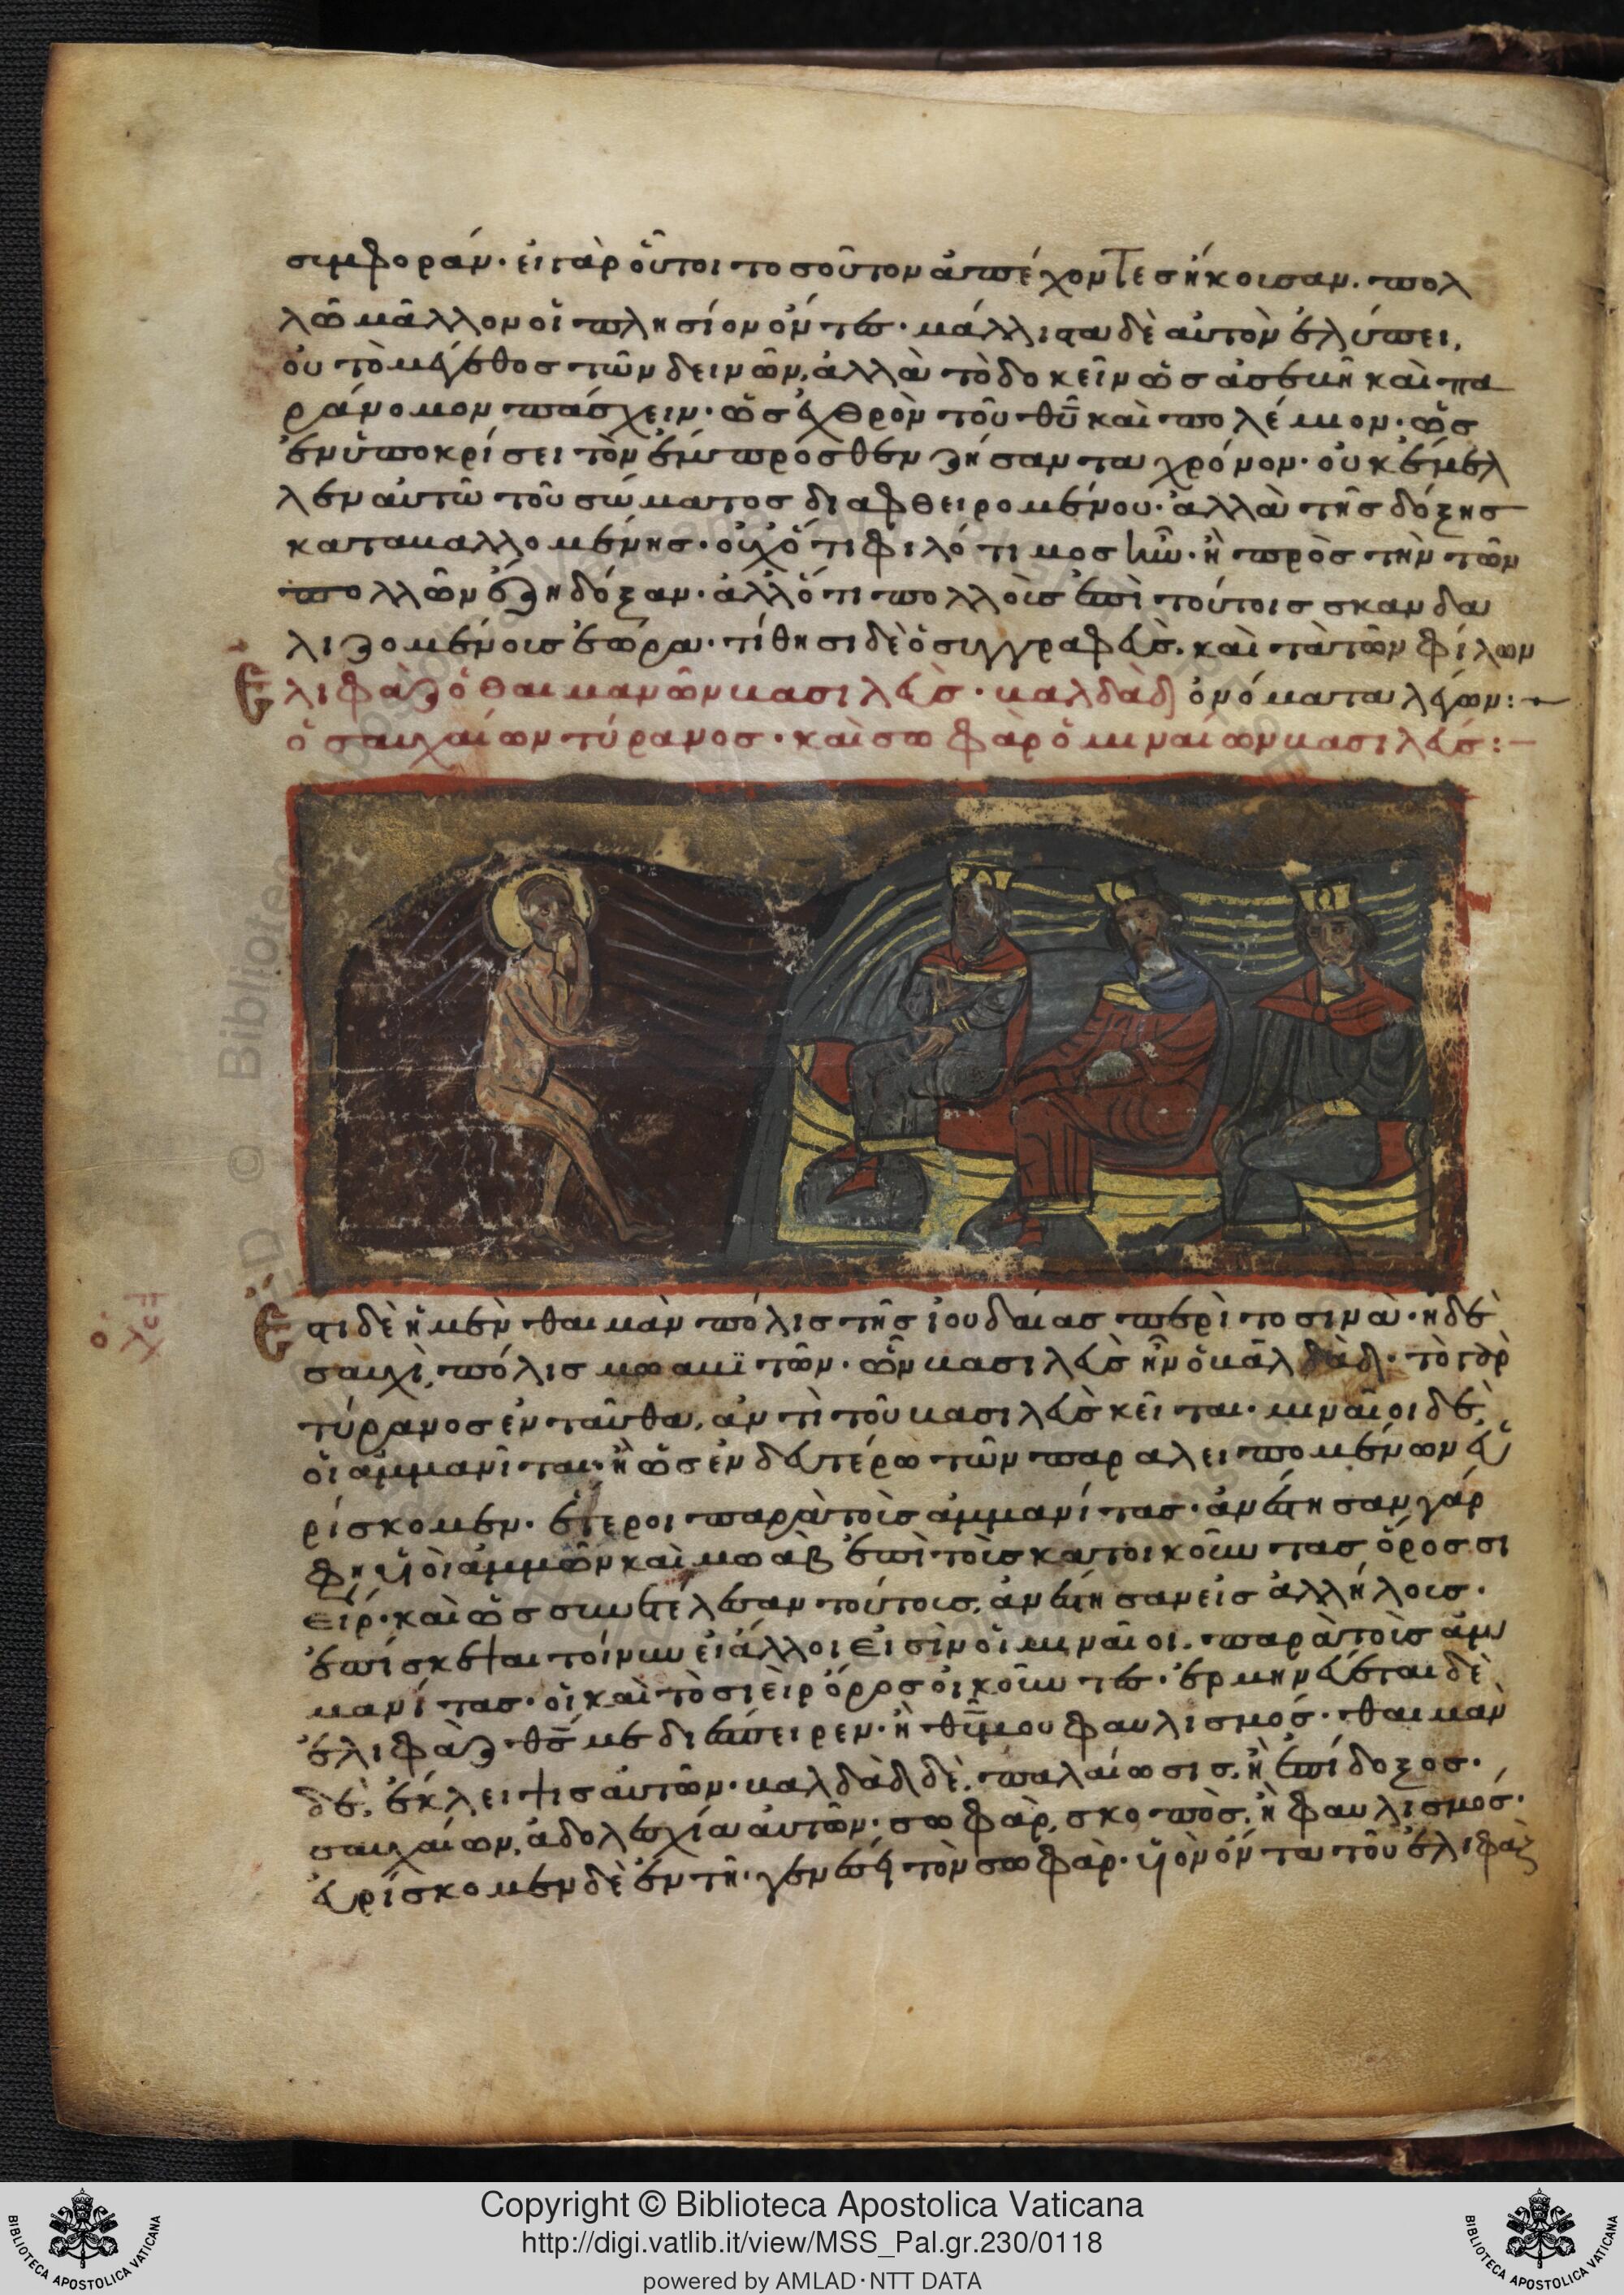 συμφοράν· εἰ γὰρ οὗτοι τοσοῦτον ἀπέχοντες ἤκουσαν. πολ
λῶ μᾶλλον οἱ πλησίον όντες· μάλλιστα δὲ αὐτὸν ἐλύπει,
οὐ τὸ μέγεθος τῶν δεινῶν, ἀλλὰ τὸ δοκεῖν ὡς ἀσεβῆ καὶ πα
ράνομον πάσχειν· ὡς ἐχθρὸν τοῦ θῡ καὶ πολέμιον· ὡς
ἐν ὑποκρίσει τὸν ἐμπροσθεν ζήσαντα χρόνον· οὐκ ἔμελ
λεν αὐτῶ τοῦ σώματος διαφθειρομένου· ἀλλὰ τῆς δόξης
καταβαλλομένης· οὐχ ὅτι φιλότιμος ἦν· ἢ πρὸς τὴν τῶν
πολλῶν ἔζη δόξαν· ἀλλ' ὅτι πολλοὺς ἐπὶ τούτοις σκανδα
λιζομένους ἑώρα· τίθησι δὲ ὁ συγγραφεὺς. καὶ τὰ τῶν φίλων
Ἐλιφὰζ ὁ θαιμανῶν βασιλεὺς· βαλδὰδ ὀνόματα λέγων:
ὁ σαυχαίων τύρανος· καὶ σωφὰρ ὁ μιναίων βασιλεύς:
Ἔστι δὲ ἡ μὲν θαιμὰν πόλις τῆς ἰουδαίας περὶ το σινὰ· ἡ δὲ
σαυχὶ, πόλις μωαβϊτῶν· ὧν βασιλεὺς ἦν ὁ βαλδὰδ· τὸ γὰρ
τύρανος ἐνταῦθα, ἀντὶ τοῦ βασιλεὺς κεῖται· μιναῖοι δὲ,
οἱ ἀμμανῖται· ἢ ὡς ἐν δευτέρω τῶν παραλειπομένων εὑ
ρίσκομεν· ἕτεροι παρὰ τοὺς ἀμμανίτας· ἀνέστησαν γάρ
φη υἱοὶ ἀμμῶν καὶ μωαβ ἐπὶ τοὺς κατοικοῦντας ὄρος σι
είρ· καὶ ὡς συνετέλεσαν τούτους, ἀνέστησαν εἰς ἀλλήλους·
ἐπίσκεψαι τοίνυν εἰ άλλοι εἰσὶν οἱ μιναῖοι. παρὰ τοὺς ἀμ
μανίτας· οἱ καὶ τὸ σιεὶρ ὄρος οἰκοῦντες· ἑρμηνεύεται δὲ
ἐλιφὰζ θς με διέσπειρεν· ἢ θῡ μου φαυλισμός· θαιμὰν
δὲ, ἔκλειψις αὐτῶν· βαλδὰδ δὲ, παλαίωσις, ἢ ἐπίδοξος·
σαυχαίων, ἀδολεσχία αὐτῶν· σωφὰρ, σκοπὸς, ἢ φαυλισμός·
εὑρίσκομεν δὲ ἐν τῆ γενέσει τὸν σωφὰρ· υἱὸν όντα τοῦ ἐλιφὰζ
Copyright © Biblioteca Apostolica Vaticana
http://digi.vatlib.it/view/MSS_Pal.gr.230/0118
powered by AMLAD·NTT DATA
BIBLIOTECA APOSTOLICA VATICANA
BIBLIOTECA APOSTOLICA VATICANA